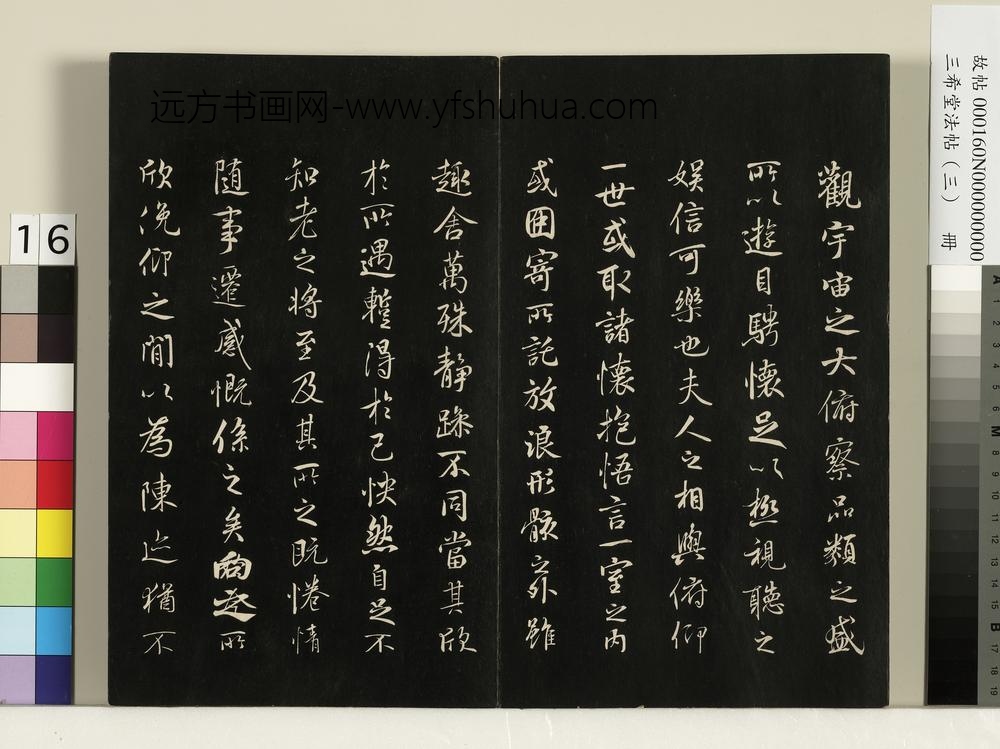 远方书画网-www.yfshuhua.com
觀宇宙之大俯察品類之盛
所以遊目騁懷足以極視聽之
娛信可樂也夫人之相與俯仰
一世或取諸懷抱悟言一室之内
或因寄所託放浪形骸之外雖
趣舍萬殊静躁不同當其欣
於所遇蹔得於己怏然自足不
知老之將至及其所之既惓情
随事遷感慨係之矣向之所
欣俛仰之閒以為陳迹猶不
故帖 000160N000000000
三希堂法帖（三） 冊
16
A 1 2 3 4 5 6 M 8 9 10 11 12 13 14 15 B 17 18 19